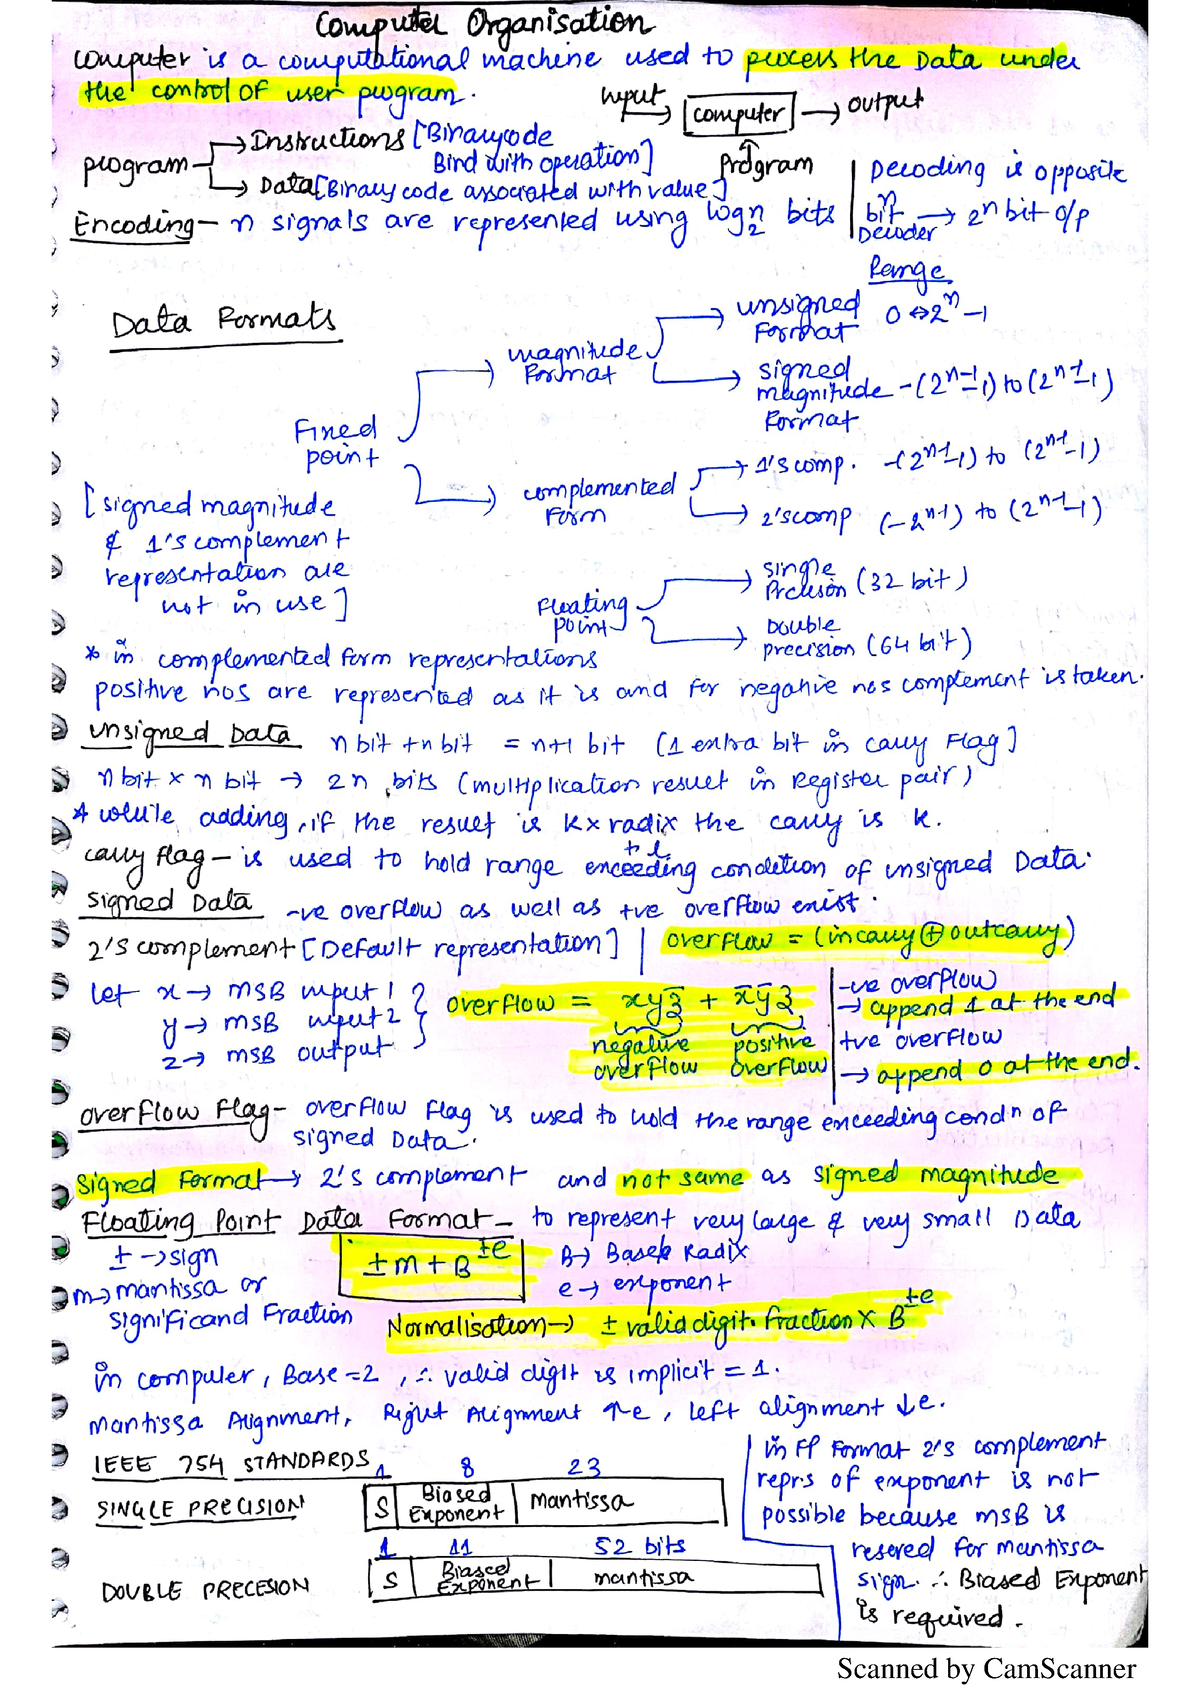 Computer Organisation
Computer is a computational machine used to process the Data under
the control of user program.
Input → [computer] → output
Program
program → Instructions [Binary code
Bind with operation]
→ Data [Binary code associated with value]
Encoding – n signals are represented using log₂n bits
Decoding is opposite
n bit Decoder → 2ⁿ bit o/p
Data Formats
Range
Fixed point
magnitude Format
unsigned Format 0 ↔ 2ⁿ-1
signed magnitude Format -(2ⁿ⁻¹-1) to (2ⁿ⁻¹-1)
complemented Form
1's comp. -(2ⁿ⁻¹-1) to (2ⁿ⁻¹-1)
2's comp (-2ⁿ⁻¹) to (2ⁿ⁻¹-1)
[signed magnitude
& 1's complement
representation are
not in use]
Floating point
single Precision (32 bit)
Double precision (64 bit)
* in complemented form representations
positive nos are represented as it is and for negative nos complement is taken.
unsigned Data n bit + n bit = n+1 bit (1 extra bit in carry Flag]
n bit × n bit → 2n bits (multiplication result in Register pair)
* while adding, if the result is K x radix the carry is K.
carry flag – is used to hold range exceeding condition of unsigned Data.
signed Data -ve overflow as well as +ve overflow exist.
2's complement [Default representation] | overflow = (incarry ⊕ outcarry)
let x → MSB input 1
y → MSB input 2
z → MSB output
overflow = xyz̄ + x̄ȳz
negative overflow positive overflow
-ve overflow
→ append 1 at the end
+ve overflow
→ append 0 at the end.
overflow Flag – overflow flag is used to hold the range exceeding condn of
signed Data.
Signed Format → 2's complement and not same as signed magnitude
Floating Point Data Format – to represent very large & very small Data
± → sign
m → mantissa or
significand Fraction
±m + B^±e
B → Base & Radix
e → exponent
Normalisation → ± valid digit. fraction X B^±e
in computer, Base = 2, ∴ valid digit is implicit = 1.
Mantissa Alignment, Right Alignment ↑e, left alignment ↓e.
IEEE 754 STANDARDS
1 8 23
SINGLE PRECISION S Biased Exponent mantissa
1 11 52 bits
DOUBLE PRECESION S Biased Exponent mantissa
in FP Format 2's complement
reprs of exponent is not
possible because MSB is
reserved for mantissa
sign. ∴ Biased Exponent
is required.
Scanned by CamScanner